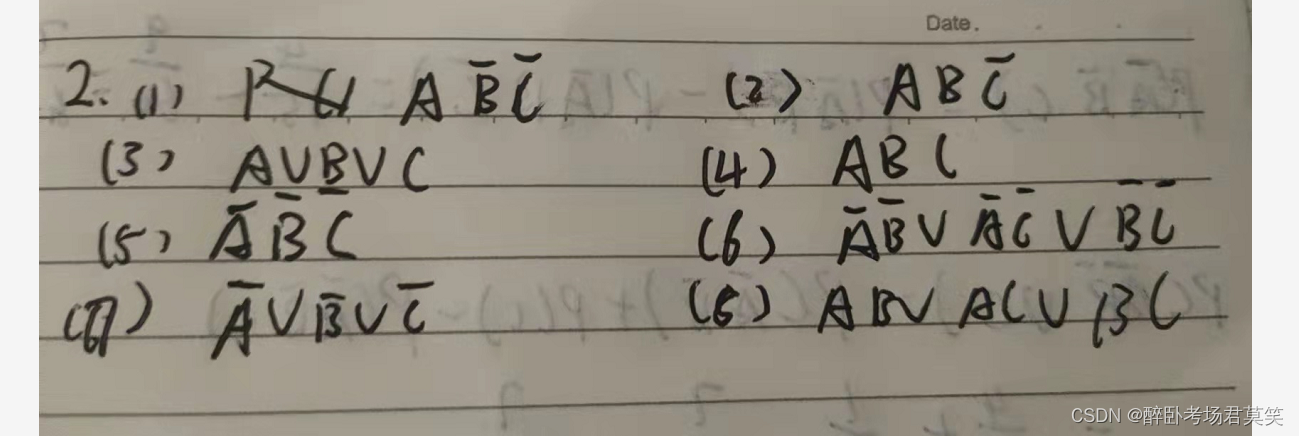 Date.
2. (1) A B̅ C̅ (2) A B C̅
(3) A∪B∪C (4) A B C
(5) A̅ B̅ C (6) A̅ B̅ ∪ A̅ C̅ ∪ B̅ C̅
(7) A̅ ∪ B̅ ∪ C̅ (8) A B ∪ A C ∪ B C
CSDN @醉卧考场君莫笑